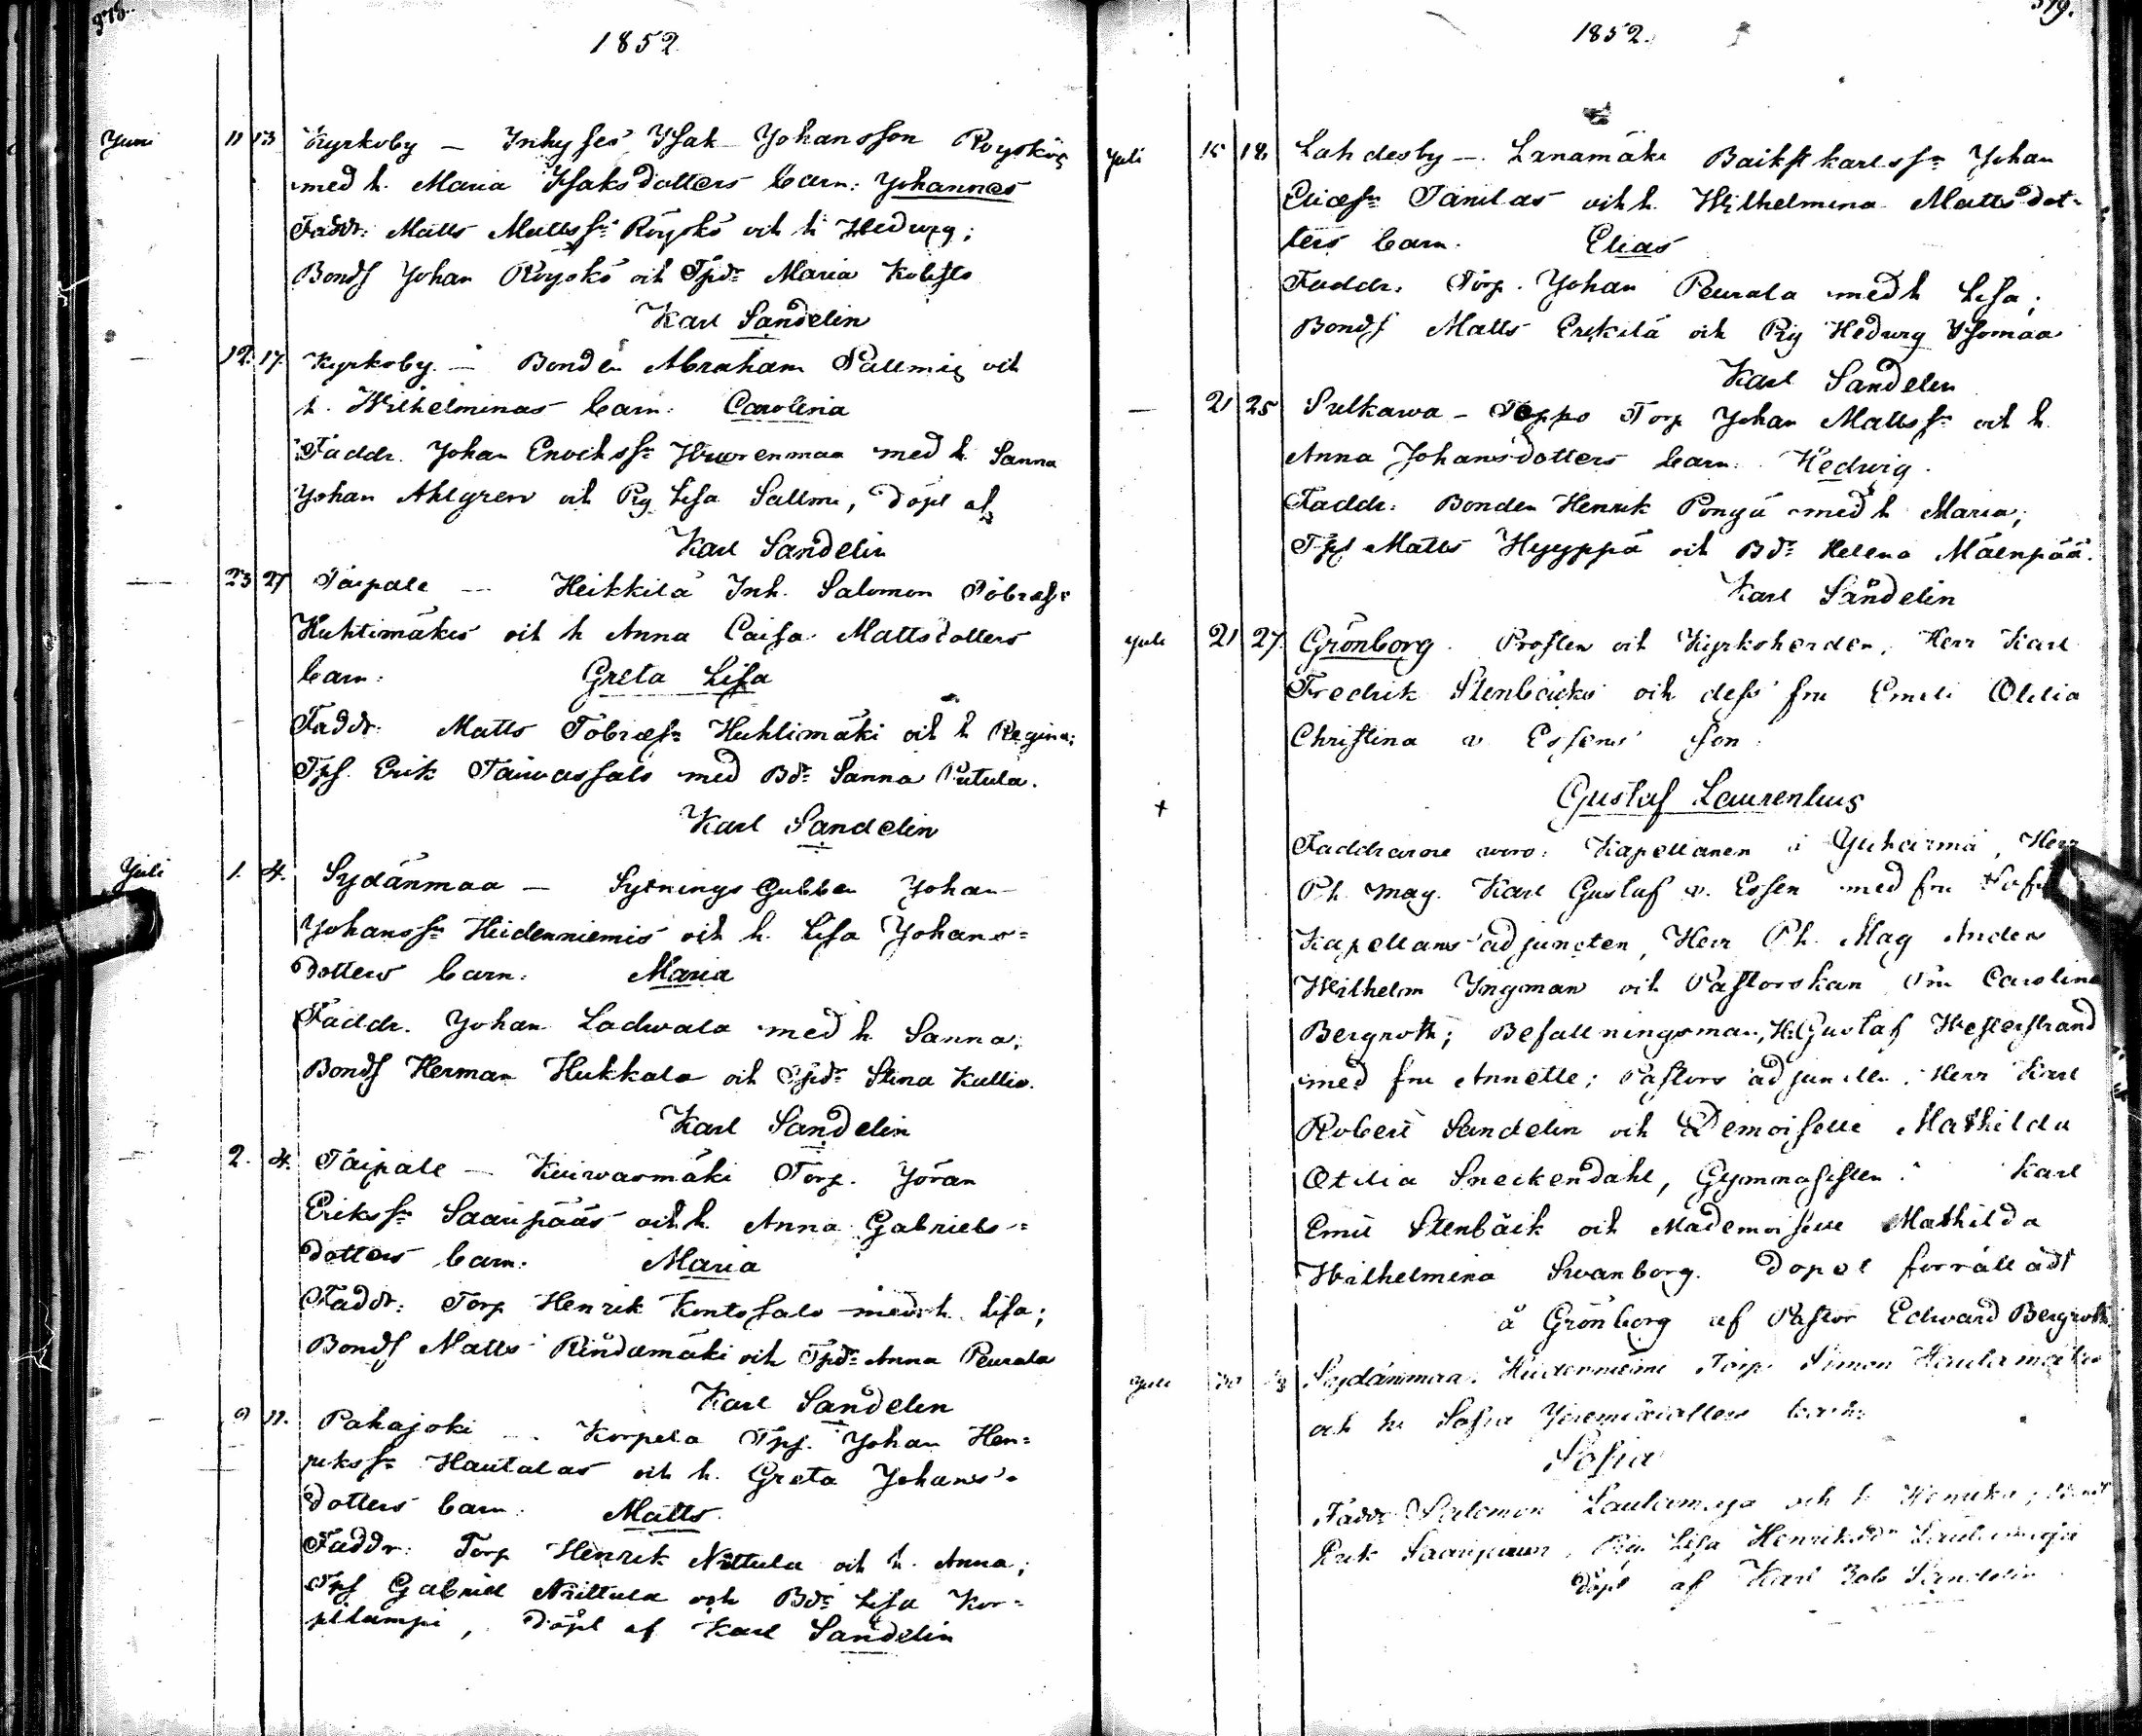 378.
1852
Juni 11 13 Kyrkoby — Inhyses Isak Johansson Röyskös
med h. Maria Isaksdotters barn: Johannes
Faddr: Matts Mattss:n Röyskö och h Hedwig;
Bonds Johan Röyskö och Tpdr Maria Kolisto
Karl Sandelin
— 12. 17. Kyrkoby. — Bonden Abraham Sallmis och
h. Wilhelminas barn: Carolina
Faddr. Johan Enochss:n Wuorenmaa med h. Sanna
Johan Ahlgren och Pig Lisa Sallmi, döpt af
Karl Sandelin
— 23 27 Taipale — Heikkilä Inh. Salomon Tobiass:n
Huhtimäkis och h Anna Caisa Mattsdotters
barn: Greta Lisa
Faddr: Matts Tobiass:n Huhtimäki och h Regina;
Tps. Erik Taiwassalo med Bdr Sanna Putula.
Karl Sandelin
Juli 1. 4. Sydänmaa — Sytnings Gubben Johan
Johanss:n Hiidenniemis och h. Lisa Johans=
dotters barn: Maria
Faddr. Johan Ladwala med h Sanna;
Bonds Herman Hukkala och Tpdr Stina Kallio.
Karl Sandelin
— 2. 4. Taipale — Kuiwasmäki Torp. Jöran
Erikss:n Saaripääs och h. Anna Gabriels=
dotters barn: Maria
Faddr: Torp Henrik Kontosalo med h. Lisa;
Bonds Matts Rindamäki och Tpdr Anna Peurala
Karl Sandelin
9 11. Pahajoki — Korpela Tps. Johan Hen=
rikss:n Hautalas och h. Greta Johans=
dotters barn: Matts.
Faddr: Torp Henrik Niittula och h. Anna;
Tps Gabriel Niittula och Bdr Lisa Kor=
pilampi, döpt af Karl Sandelin
379.
1852.
Juli 15 18. Lahdesby — Lanamäki Karlss:n Johan
Eliass:n Tanilas och h. Wilhelmina Mattsdot=
ters barn: Elias
Faddr: Torp. Johan Peurala med h Lisa;
Bonds Matts Erkkilä och Pig Hedwig Isomaa
Karl Sandelin
— 21 25 Sulkawa — Toppo Torp Johan Mattss:n och h.
Anna Johansdotters barn: Hedwig.
Faddr: Bonden Henrik Ponyä med h Maria;
Tps Matts Hyyppä och Bdr Helena Mäenpää.
Karl Sandelin
Juli 21 27. Grönborg. Prosten och Kyrkoherden, Herr Karl
Fredrik Stenbäcks och dess fru Emeli Otilia
Christina v. Essens son:
Gustaf Laurentius
+
Faddrarne woro: Kapellanen i Ylihärmä, Herr
Ph. Mag. Karl Gustaf v. Essen med fru
Kapellans adjuncten, Herr Ph. Mag Anders
Wilhelm Ingman och Pastorskan Fru Carolina
Bergroth; Befallningsman, H. Gustaf Westerstrand
med fru Annette; Pastors adjuncten, Herr Karl
Robert Sandelin och Demoiselle Mathilda
Otilia Sneckendahl, Gymnasisten: Karl
Emil Stenbäck och Mademoiselle Mathilda
Wilhelmina Swanborg. Döpel förrättadt
å Grönborg af Pastor Edward Bergroth
Juli 30 Sydänmaa. Hiidenniemi Torp. Simon Hautamäkis
och h. Sofia Jeremiædotters barn:
Sofia
Faddr Salomon Lautamaja och h Henrika; Bonds
Erik Saaripään, Pig. Lisa Henriksdr Lautamaja
döpt af Karl Rob Sandelin